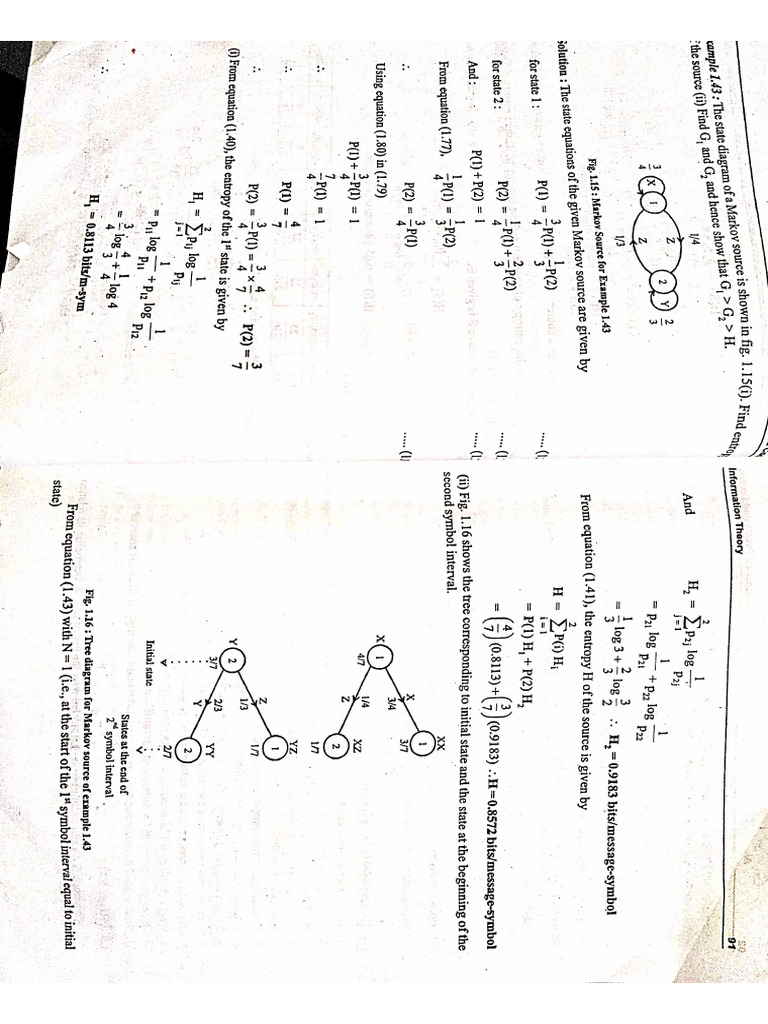 ample 1.43 : The state diagram of a Markov source is shown in fig. 1.15(i). Find entro
the source (ii) Find G₁ and G₂ and hence show that G₁ > G₂ > H.
1/4
3/4 X 1 Z Z 2 Y 2/3
1/3
Fig. 1.15 : Markov Source for Example 1.43
Solution : The state equations of the given Markov source are given by
for state 1 : P(1) = 3/4 P(1) + 1/3 P(2) ..... (1
for state 2 : P(2) = 1/4 P(1) + 2/3 P(2) ..... (1
And : P(1) + P(2) = 1 ..... (1
From equation (1.77), 1/4 P(1) = 1/3 P(2)
∴ P(2) = 3/4 P(1) ..... (1
Using equation (1.80) in (1.79)
P(1) + 3/4 P(1) = 1
∴ 7/4 P(1) = 1
∴ P(1) = 4/7
∴ P(2) = 3/4 P(1) = 3/4 × 4/7 ∴ P(2) = 3/7
(i) From equation (1.40), the entropy of the 1st state is given by
H₁ = 2 ∑ j = 1 p₁j log 1/p₁j
= p₁₁ log 1/p₁₁ + p₁₂ log 1/p₁₂
= 3/4 log 4/3 + 1/4 log 4
∴ H₁ = 0.8113 bits/m-sym
Information Theory 91
And H₂ = 2 ∑ j = 1 p₂j log 1/p₂j
= p₂₁ log 1/p₂₁ + p₂₂ log 1/p₂₂
= 1/3 log 3 + 2/3 log 3/2 ∴ H₂ = 0.9183 bits/message-symbol
From equation (1.41), the entropy H of the source is given by
H = 2 ∑ i = 1 P(i) Hᵢ
= P(1) H₁ + P(2) H₂
= (4/7) (0.8113) + (3/7) (0.9183) ∴ H = 0.8572 bits/message-symbol
(ii) Fig. 1.16 shows the tree corresponding to initial state and the state at the beginning of the
second symbol interval.
XX
X 3/4 1 3/7
X 1 4/7
Z 1/4 2 XZ 1/7
YZ
Z 1/3 1 1/7
Y 2 3/7
Y 2/3 2 YY 2/7
Initial state
States at the end of
2nd symbol interval
Fig. 1.16 : Tree diagram for Markov source of example 1.43
From equation (1.43) with N = 1 (i.e., at the start of the 1st symbol interval equal to initial
state)